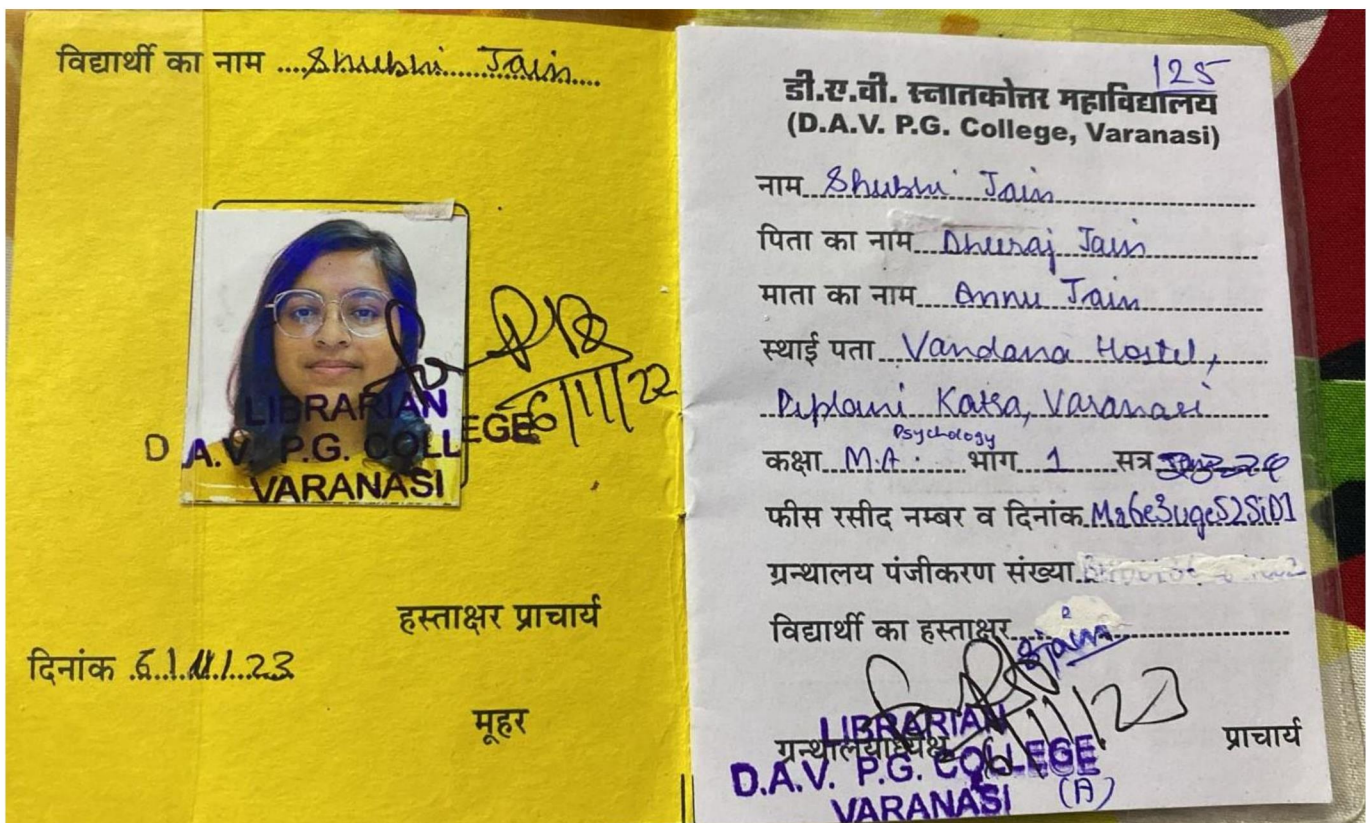 विद्यार्थी का नाम Shubhi Jain
6/11/22
LIBRARIAN
D.A.V. P.G. COLLEGE
VARANASI
हस्ताक्षर प्राचार्य
दिनांक 6/11/23
मूहर
125
डी.ए.वी. स्नातकोत्तर महाविद्यालय
(D.A.V. P.G. College, Varanasi)
नाम Shubhi Jain
पिता का नाम Dheeraj Jain
माता का नाम Annu Jain
स्थाई पता Vandana Hostel,
Katra, Varanasi
Psychology
कक्षा M.A. भाग 1 सत्र
फीस रसीद नम्बर व दिनांक
ग्रन्थालय पंजीकरण संख्या
विद्यार्थी का हस्ताक्षर SJain
ग्रन्थालयाध्यक्ष 6/11/23 प्राचार्य
LIBRARIAN
D.A.V. P.G. COLLEGE
VARANASI (A)